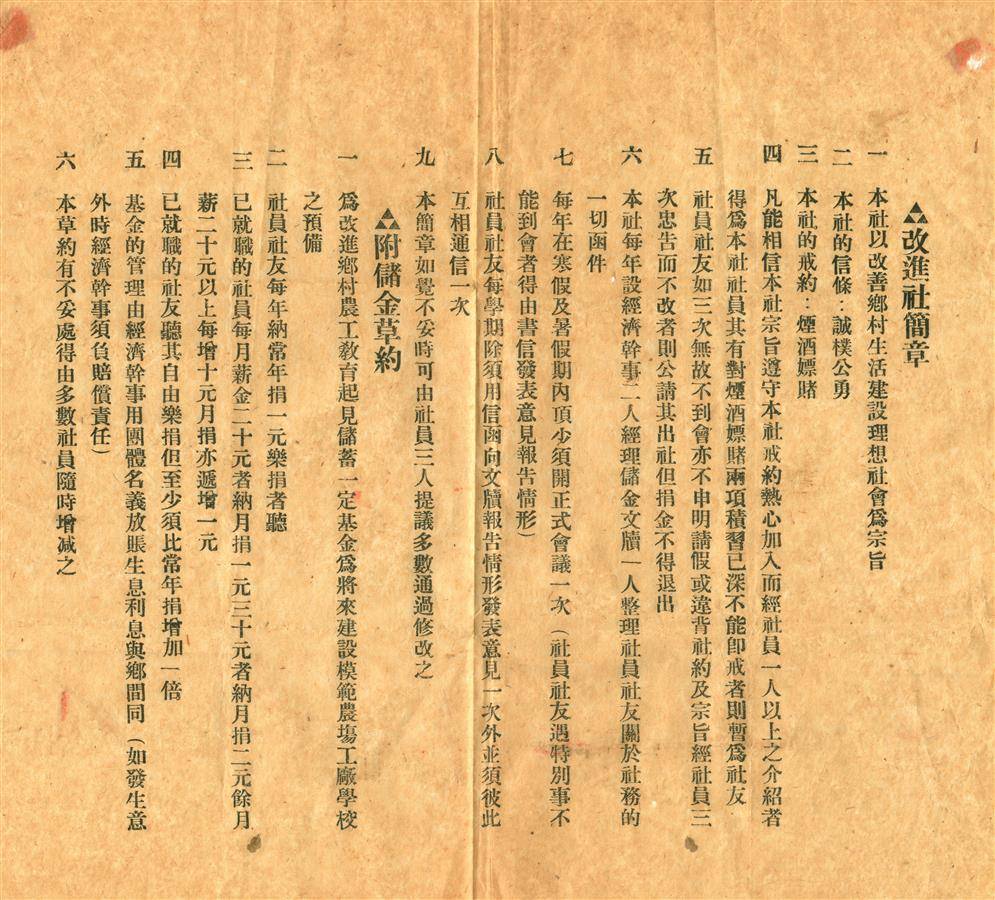 改進社簡章
一 本社以改善鄉村生活建設理想社會爲宗旨
二 本社的信條：誠樸公勇
三 本社的戒約：煙酒嫖賭
四 凡能相信本社宗旨遵守本社戒約熱心加入而經社員一人以上之介紹者
得爲本社社員其有對煙酒嫖賭兩項積習已深不能卽戒者則暫爲社友
五 社員社友如三次無故不到會亦不申明請假或違背社約及宗旨經社員三
次忠告而不改者則公請其出社但捐金不得退出
六 本社每年設經濟幹事二人經理儲金文牘一人整理社員社友關於社務的
一切函件
七 每年在寒假及暑假期內項少須開正式會議一次（社員社友遇特別事不
能到會者得由書信發表意見報告情形）
八 社員社友每學期除須用信函向文牘報告情形發表意見一次外並須彼此
互相通信一次
九 本簡章如覺不妥時可由社員三人提議多數通過修改之
附儲金草約
一 爲改進鄉村農工教育起見儲蓄一定基金爲將來建設模範農塲工廠學校
之預備
二 社員社友每年納常年捐一元樂捐者聽
三 已就職的社員每月薪金二十元者納月捐一元三十元者納月捐二元餘月
薪二十元以上每增十元月捐亦遞增一元
四 已就職的社友聽其自由樂捐但至少須比常年捐增加一倍
五 基金的管理由經濟幹事用團體名義放賬生息利息與鄉間同（如發生意
外時經濟幹事須負賠償責任）
六 本草約有不妥處得由多數社員隨時增減之